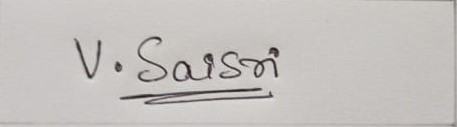 V. Saisri